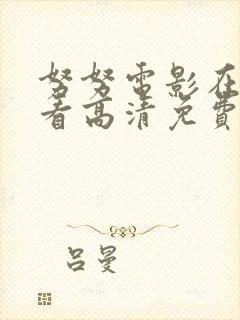 努努電影在
看高清免費
呂曼